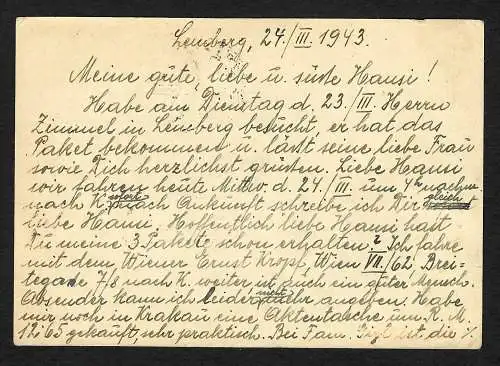 Lemberg, 24./III. 1943.
Meine gute, liebe u. süsse Hansi!
Habe am Dienstag d. 23./III. Herrn
Zimmel in Lemberg besucht, er hat das
Paket bekommen u. lässt seine liebe Frau
sowie Dich herzlichst grüssen. Liebe Hansi
wir fahren heute Mittw. d. 24./III. um 4h nachm.
nach K. nach Ankunft schreibe ich Dir gleich
liebe Hansi. Hoffentlich liebe Hansi hast
Du meine 3 Pakete schon erhalten? Ich fahre
mit dem Wiener Ernst Wien VII/62, Brei-
tegasse 7/8 nach K. weiter, ist auch ein guter Mensch.
Absender kann ich leider nicht mehr angeben. Habe
mir noch in Krakau eine Aktentasche um R.M.
12.65 gekauft, sehr praktisch. Bei Fam. ist die %